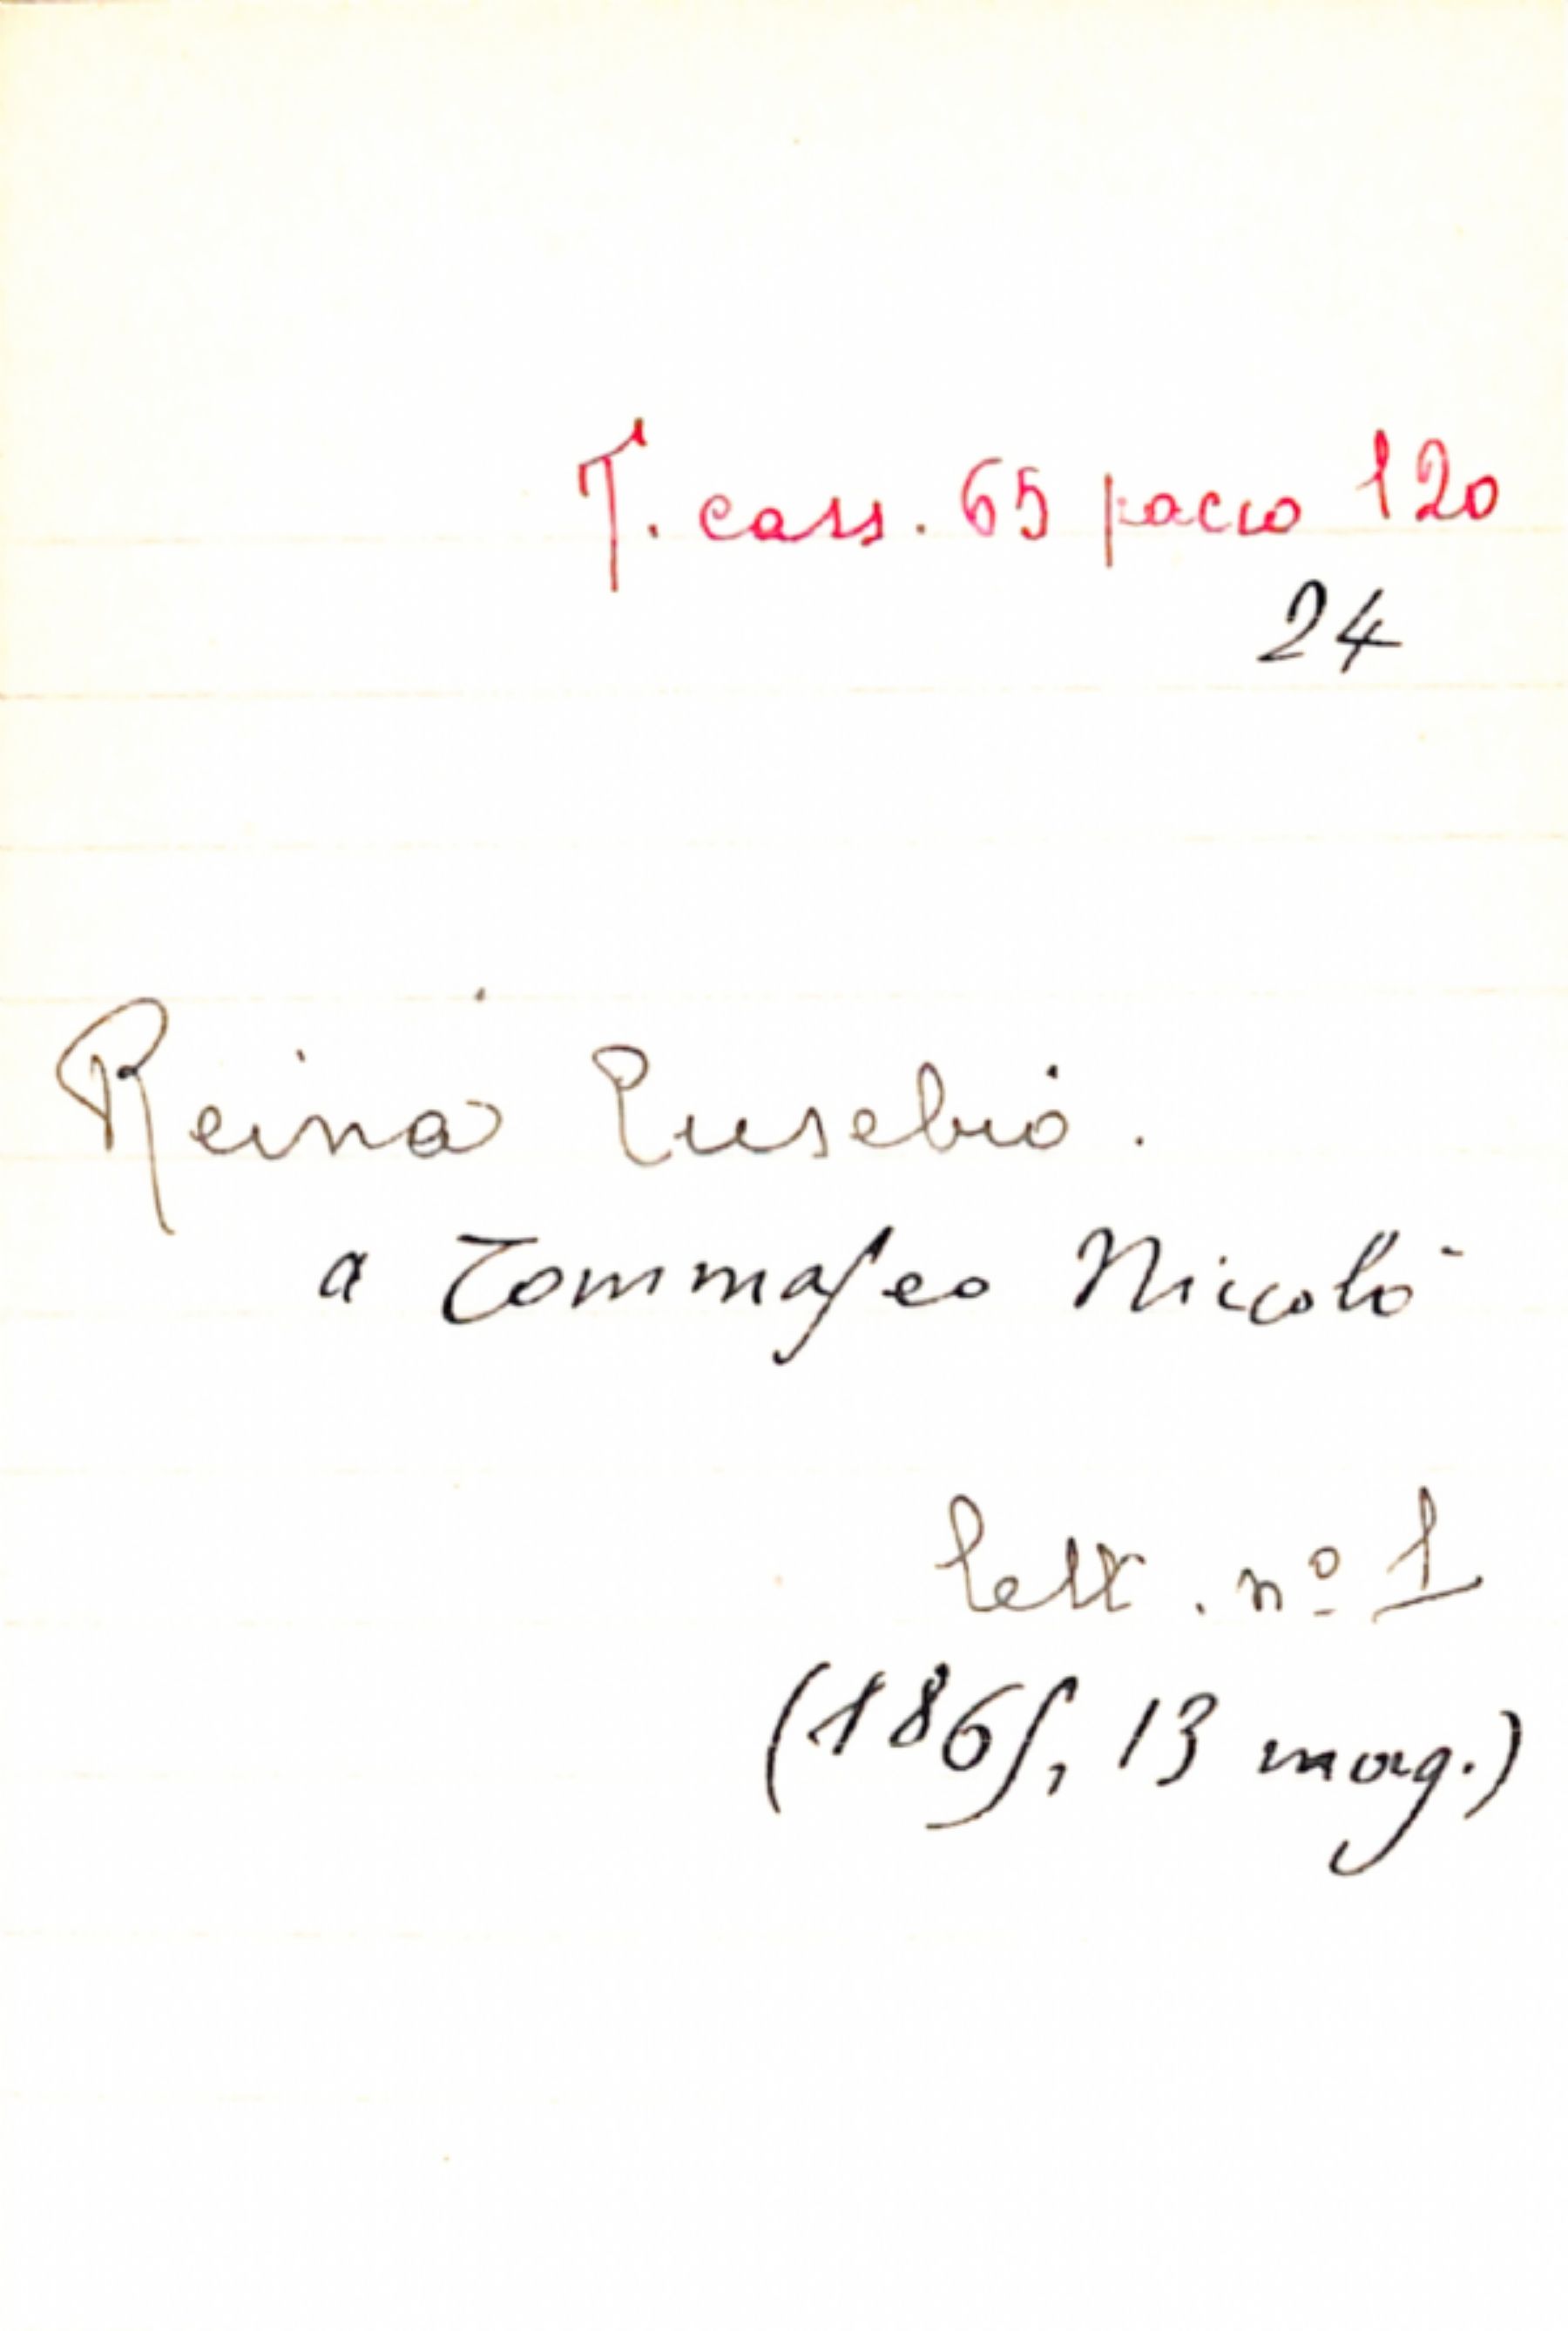 T. cass. 65 pacco 120
24
Reina Eusebio.
a Tommaseo Niccolò
lett. nº 1
(1865, 13 mag.)